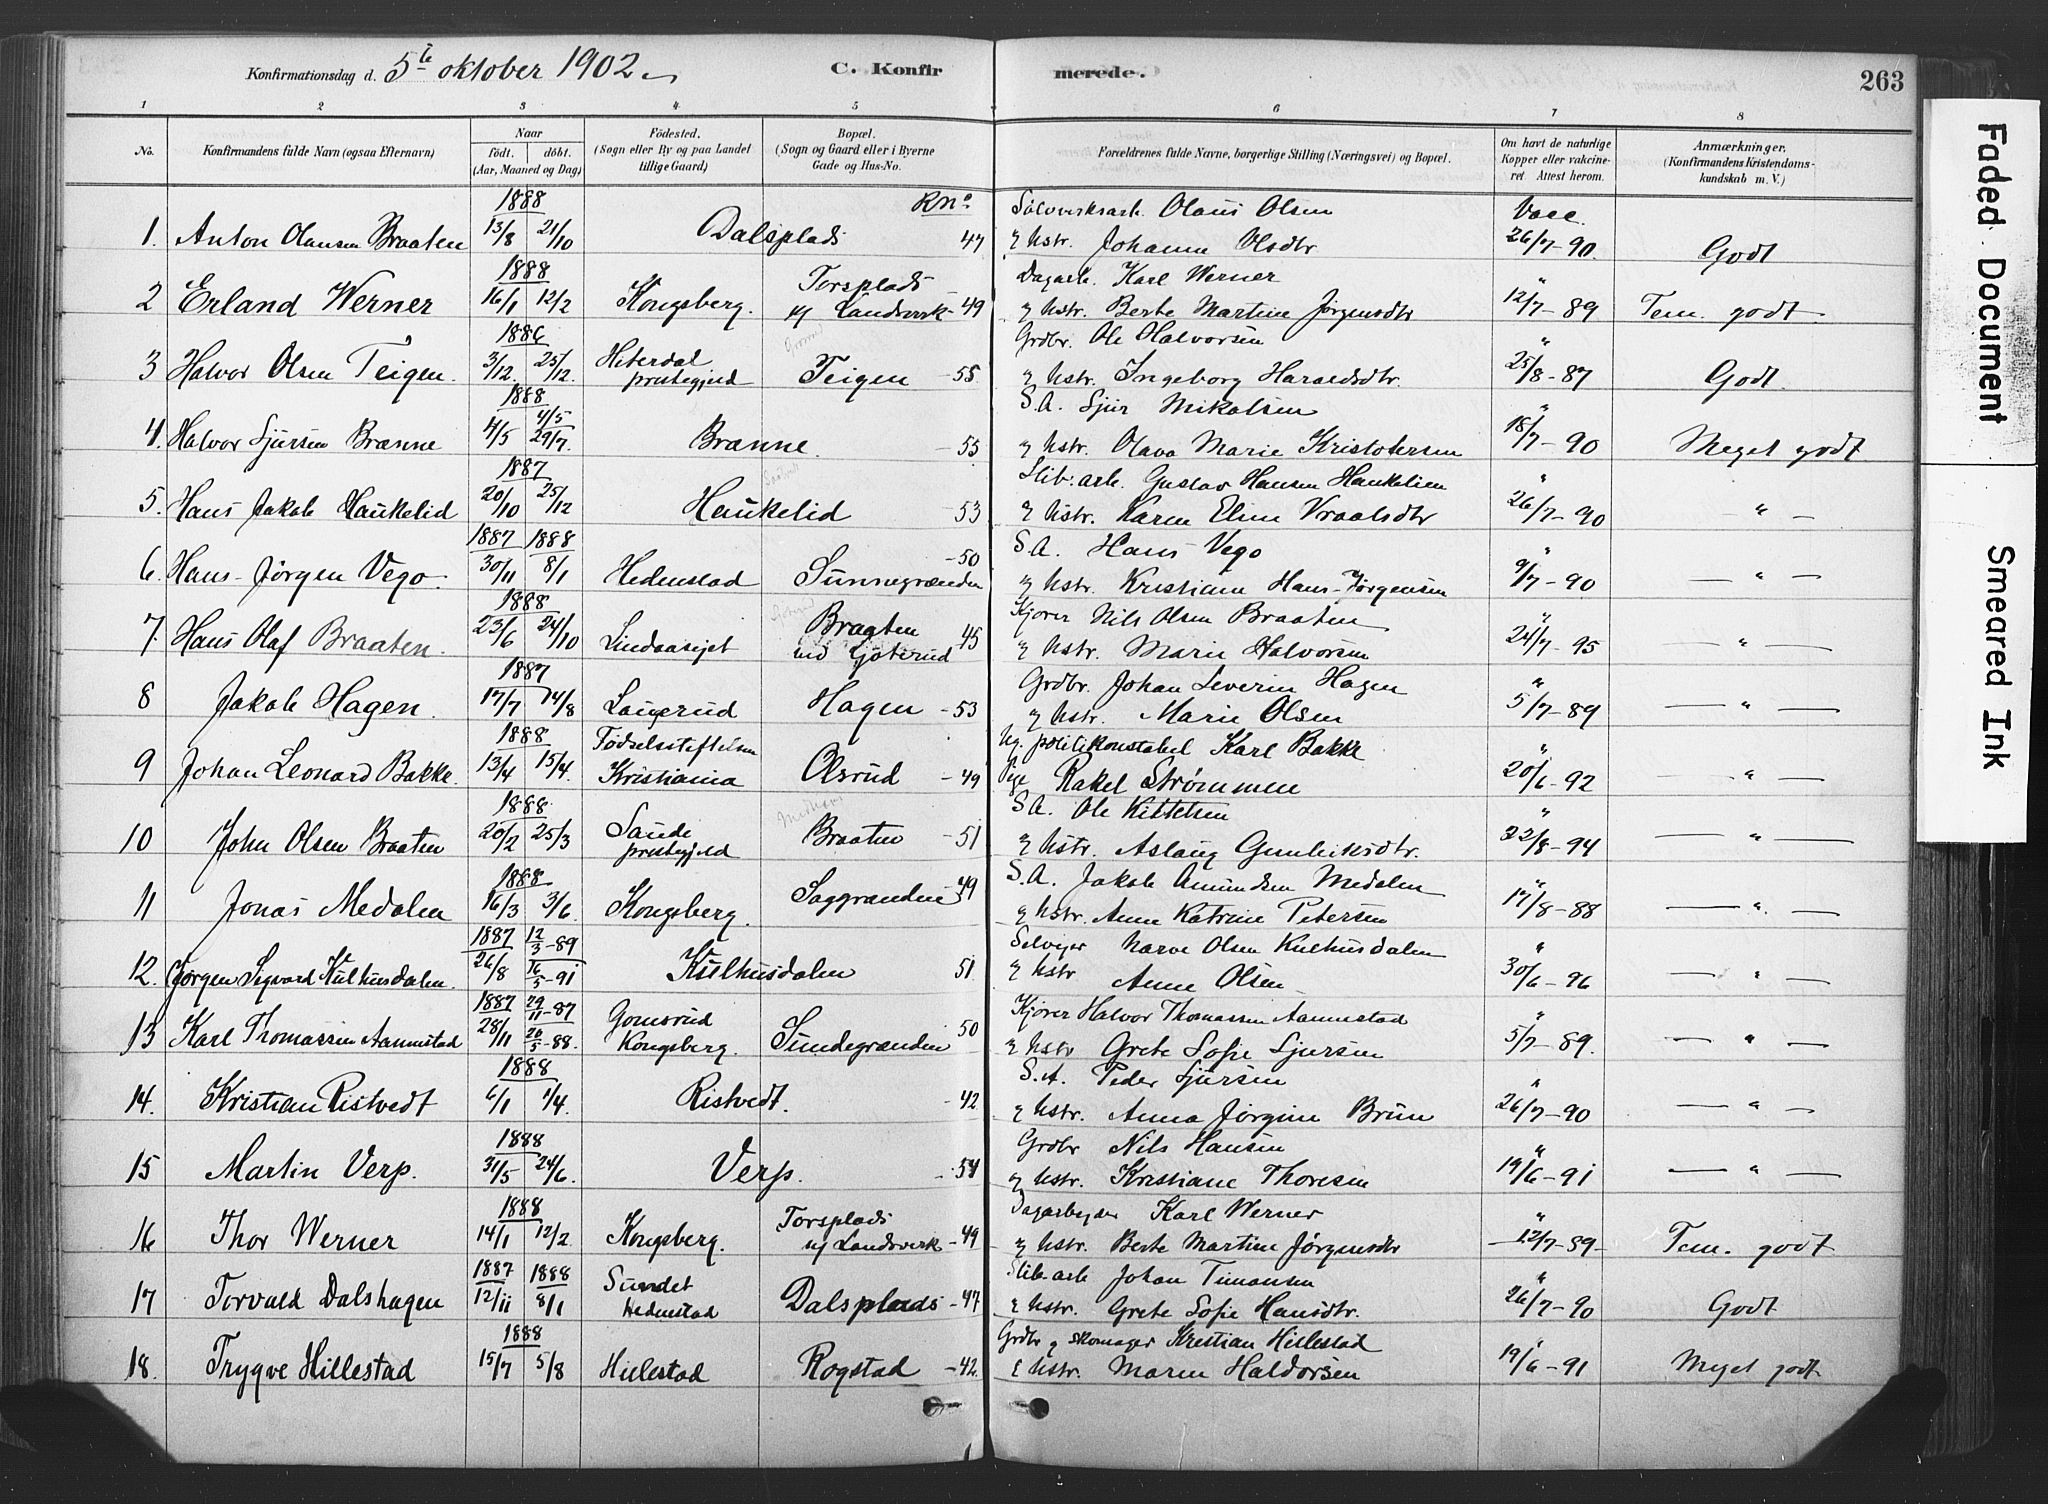 Konfirmationsdag d. 5te oktober 1902. C. Konfirmerede. 263
1 2 3 4 5 6 7 8
No. Konfirmandens fulde Navn (ogsaa Efternavn) Naar født. døbt. (Aar, Maaned og Dag) Fødested. (Sogn eller By og paa Landet tillige Gaard) Bopæl. (Sogn og Gaard eller i Byerne Gade og Hus-No. Forældrenes fulde Navne, borgerlige Stilling (Næringsvei) og Bopæl. Om havt de naturlige Kopper eller vakcineret Attest herom. Anmærkninger. (Konfirmandens Kristendomskundskab m. V.)
1888 Rno Sølvverksarb. Olaus Olsen Vacc.
1. Anton Olausen Braaten 13/8 21/10 Dalsplads 47 & hstr. Johanne Olsdtr 26/7-90. Godt
1888 Torsplads Dagarb. Karl Werner "
2 Erland Werner 16/1 12/2 Kongsberg. u/ Landsverk -49 & hstr. Berte Martine Jørgensdtr 12/7-89 Tem. godt.
1886 Hiterdal Grdbr. Ole Halvorsen "
3 Halvor Olsen Teigen. 3/12. 25/12. prestegjeld Teigen -55 & hstr. Ingeborg Haraldsdtr. 25/8-87 Godt.
1888 4/5 S.A. Sjur Mikalsen "
4. Halvor Sjursen Brænne 4/5 29/7. Brænne. -55 & hstr. Olava Marie Kristofersen 18/7-90 Meget godt
1887 Slib.arb. Gustav Hansen Haukelien "
5. Hans Jakob Haukelid 20/10 25/12 Haukelid -53 & hstr. Karen Eline Vraalsdtr 26/7-90 " —
1887 1888 -50 S.A. Hans Vego "
6. Hans-Jørgen Vego. 30/11 8/1 Hedenstad Sunnegrænden & hstr. Kristiane Hans-Jørgensen 9/7-90 — " —
1888 Braaten Kjører Nils Olsen Braaten "
7. Hans Olaf Braaten. 23/6 24/10 Lindaasejet Gjøterud 45 & hstr. Marie Halvorsen 24/7-95 — " —
1887 Grdbr. Johan Severin Hagen "
8 Jakob Hagen. 17/7 14/8 Laugerud Hagen -53 & hstr. Marie Olsen 5/7-89 — " —
1888 Fødselsstiftelsen Ug. politikonstabel Karl Bakke "
9 Johan Leonard Bakke. 13/4 15/4. Kristiania Olsrud -49 Pige Rakel Strømmen 20/6-92 — " —
1888 Saude S.A. Ole Kittelsen "
10 John Olsen Braaten 20/2 25/3 prestegjeld Braaten -51 & hstr. Aslaug Gunleiksdtr. 22/8-94 — " —
1888 S.A. Jakob Amundsen Medalen "
11 Jonas Medalen 16/3 3/6. Kongsberg. Saggrænden 49 & hstr. Anne Katrine Petersen 17/8-88 — " —
1887 12/3-89 Selvejer Narve Olsen Kulhusdalen "
12. Jørgen Sigvard Kulhusdalen. 26/8 16/5-91 Kulhusdalen 51 & hstr Anne Olsen 30/6-96 — " —
1887 29/11-87 Gomsrud Kjører Halvor Thomassen Aannestad "
13 Karl Thomassen Aannestad 28/11 20/5-88. Kongsberg. Sundegrænden 50 & hstr Grete Sofie Sjursen 5/7-89. — " —
1888 S.A. Peder Sjursen "
14. Kristian Ristvedt 6/1 1/4. Ristvedt. -42 & hstr. Anna Jørgine Brun 26/7-90 — " —
1888 Grdbr Nils Hansen "
15 Martin Verp. 31/5 24/6. Verp. -54 & hstr. Kristiane Thoresen 19/6-91 — " —
1888 Torsplads Dagarbejder Karl Werner "
16 Thor Werner 14/1 12/2. Kongsberg. u/ Landsverk -49 & hstr. Berte Martine Jørgensdtr 12/7-89- Tem. godt
1887 1888 Sundet Slib.arb Johan Timansen "
17 Torvald Dalshagen 12/11 8/1 Hedenstad Dalsplads -47 & hstr. Grete Sofie Hansdtr. 26/7-90 Godt
1888 Grdbr & skomager Kristian Hillestad "
18. Trygve Hillestad 15/7 5/8 Hillestad Rogstad -42. & hstr. Maren Haldorsen 19/6-91 Meget godt.
Faded Document
Smeared Ink